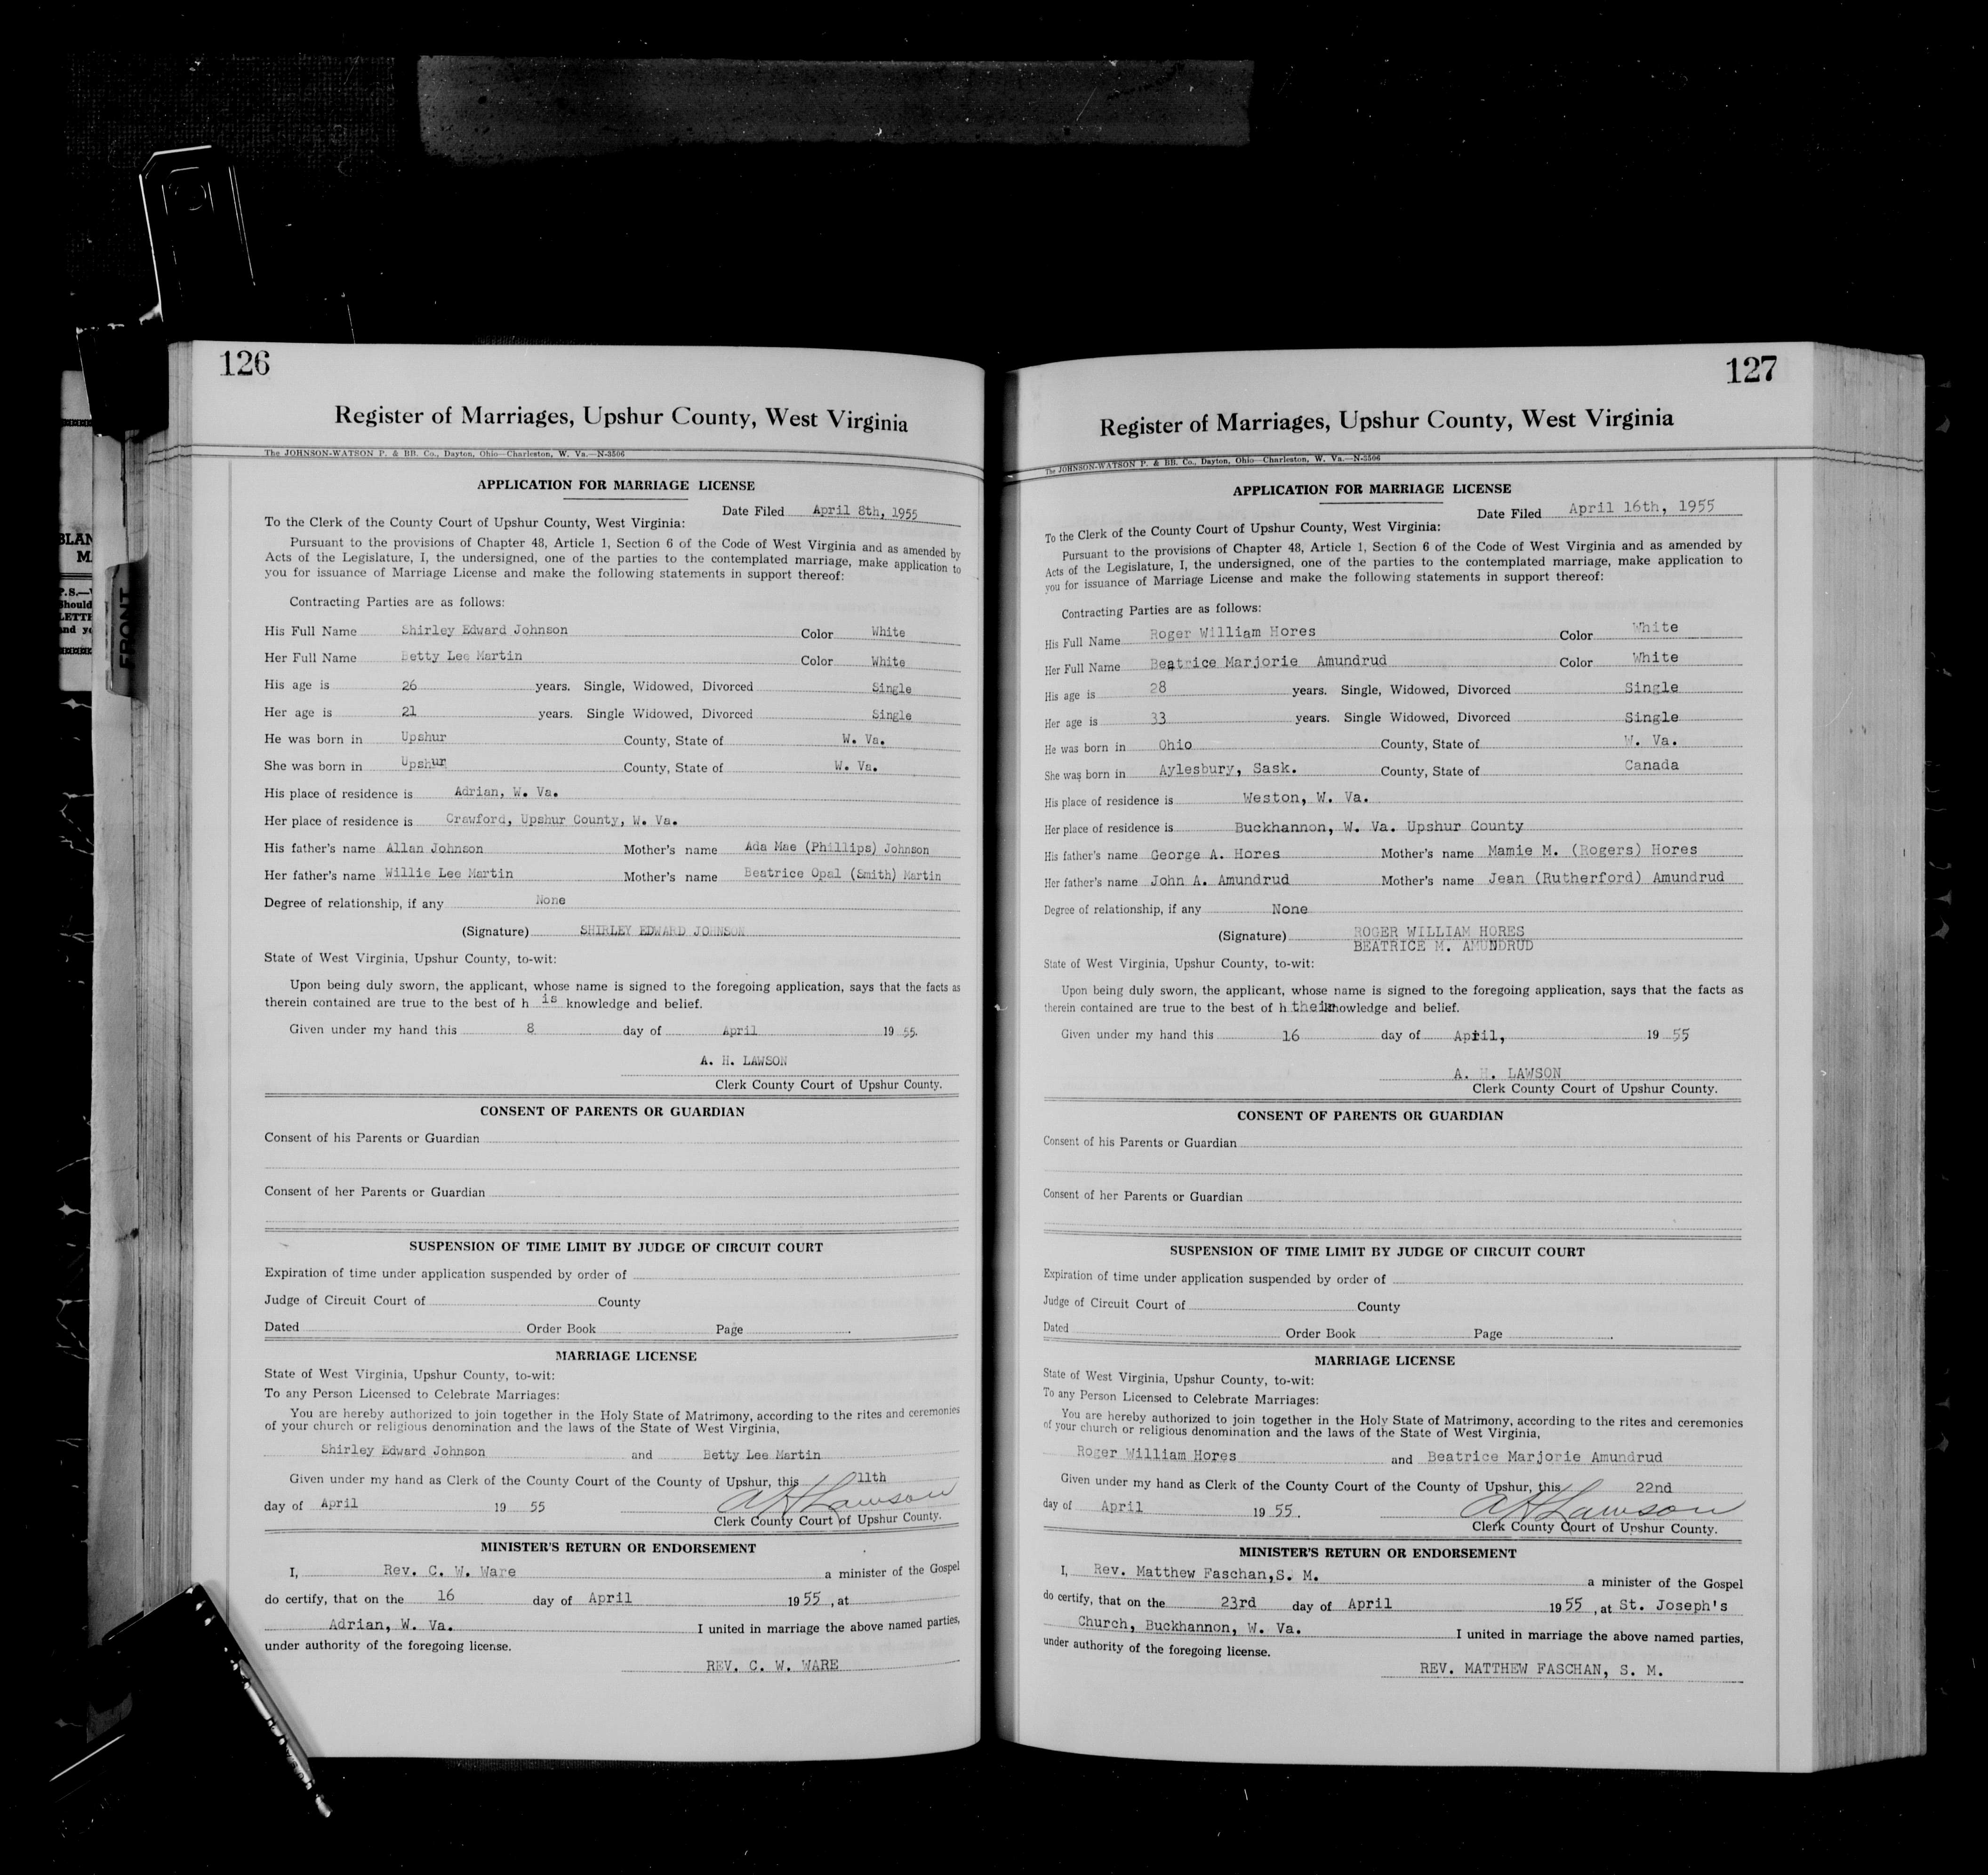 BLAN
M
P.S.—
Should
LETTE
and yo
FRONT
126
Register of Marriages, Upshur County, West Virginia
The JOHNSON-WATSON P. & BB. Co., Dayton, Ohio—Charleston, W. Va.—N-3506
APPLICATION FOR MARRIAGE LICENSE
Date Filed April 8th, 1955
To the Clerk of the County Court of Upshur County, West Virginia:
Pursuant to the provisions of Chapter 48, Article 1, Section 6 of the Code of West Virginia and as amended by
Acts of the Legislature, I, the undersigned, one of the parties to the contemplated marriage, make application to
you for issuance of Marriage License and make the following statements in support thereof:
Contracting Parties are as follows:
His Full Name Shirley Edward Johnson Color White
Her Full Name Betty Lee Martin Color White
His age is 26 years. Single, Widowed, Divorced Single
Her age is 21 years. Single Widowed, Divorced Single
He was born in Upshur County, State of W. Va.
She was born in Upshur County, State of W. Va.
His place of residence is Adrian, W. Va.
Her place of residence is Crawford, Upshur County, W. Va.
His father's name Allan Johnson Mother's name Ada Mae (Phillips) Johnson
Her father's name Willie Lee Martin Mother's name Beatrice Opal (Smith) Martin
Degree of relationship, if any None
(Signature) SHIRLEY EDWARD JOHNSON
State of West Virginia, Upshur County, to-wit:
Upon being duly sworn, the applicant, whose name is signed to the foregoing application, says that the facts as
therein contained are true to the best of h is knowledge and belief.
Given under my hand this 8 day of April 19 55.
A. H. LAWSON
Clerk County Court of Upshur County.
CONSENT OF PARENTS OR GUARDIAN
Consent of his Parents or Guardian
Consent of her Parents or Guardian
SUSPENSION OF TIME LIMIT BY JUDGE OF CIRCUIT COURT
Expiration of time under application suspended by order of
Judge of Circuit Court of County
Dated Order Book Page
MARRIAGE LICENSE
State of West Virginia, Upshur County, to-wit:
To any Person Licensed to Celebrate Marriages:
You are hereby authorized to join together in the Holy State of Matrimony, according to the rites and ceremonies
of your church or religious denomination and the laws of the State of West Virginia,
Shirley Edward Johnson and Betty Lee Martin
Given under my hand as Clerk of the County Court of the County of Upshur, this 11th
day of April 19 55 A H Lawson
Clerk County Court of Upshur County.
MINISTER'S RETURN OR ENDORSEMENT
I, Rev. C. W. Ware a minister of the Gospel
do certify, that on the 16 day of April 19 55, at
Adrian, W. Va. I united in marriage the above named parties,
under authority of the foregoing license.
REV. C. W. WARE
127
Register of Marriages, Upshur County, West Virginia
The JOHNSON-WATSON P. & BB. Co., Dayton, Ohio—Charleston, W. Va.—N-3506
APPLICATION FOR MARRIAGE LICENSE
Date Filed April 16th, 1955
To the Clerk of the County Court of Upshur County, West Virginia:
Pursuant to the provisions of Chapter 48, Article 1, Section 6 of the Code of West Virginia and as amended by
Acts of the Legislature, I, the undersigned, one of the parties to the contemplated marriage, make application to
you for issuance of Marriage License and make the following statements in support thereof:
Contracting Parties are as follows:
His Full Name Roger William Hores Color White
Her Full Name Beatrice Marjorie Amundrud Color White
His age is 28 years. Single, Widowed, Divorced Single
Her age is 33 years. Single Widowed, Divorced Single
He was born in Ohio County, State of W. Va.
She was born in Aylesbury, Sask. County, State of Canada
His place of residence is Weston, W. Va.
Her place of residence is Buckhannon, W. Va. Upshur County
His father's name George A. Hores Mother's name Mamie M. (Rogers) Hores
Her father's name John A. Amundrud Mother's name Jean (Rutherford) Amundrud
Degree of relationship, if any None
(Signature) ROGER WILLIAM HORES
BEATRICE M. AMUNDRUD
State of West Virginia, Upshur County, to-wit:
Upon being duly sworn, the applicant, whose name is signed to the foregoing application, says that the facts as
therein contained are true to the best of h their knowledge and belief.
Given under my hand this 16 day of April, 19 55
A. H. LAWSON
Clerk County Court of Upshur County.
CONSENT OF PARENTS OR GUARDIAN
Consent of his Parents or Guardian
Consent of her Parents or Guardian
SUSPENSION OF TIME LIMIT BY JUDGE OF CIRCUIT COURT
Expiration of time under application suspended by order of
Judge of Circuit Court of County
Dated Order Book Page
MARRIAGE LICENSE
State of West Virginia, Upshur County, to-wit:
To any Person Licensed to Celebrate Marriages:
You are hereby authorized to join together in the Holy State of Matrimony, according to the rites and ceremonies
of your church or religious denomination and the laws of the State of West Virginia,
Roger William Hores and Beatrice Marjorie Amundrud
Given under my hand as Clerk of the County Court of the County of Upshur, this 22nd
day of April 19 55. A H Lawson
Clerk County Court of Upshur County.
MINISTER'S RETURN OR ENDORSEMENT
I, Rev. Matthew Faschan, S. M. a minister of the Gospel
do certify, that on the 23rd day of April 19 55, at St. Joseph's
Church, Buckhannon, W. Va. I united in marriage the above named parties,
under authority of the foregoing license.
REV. MATTHEW FASCHAN, S. M.